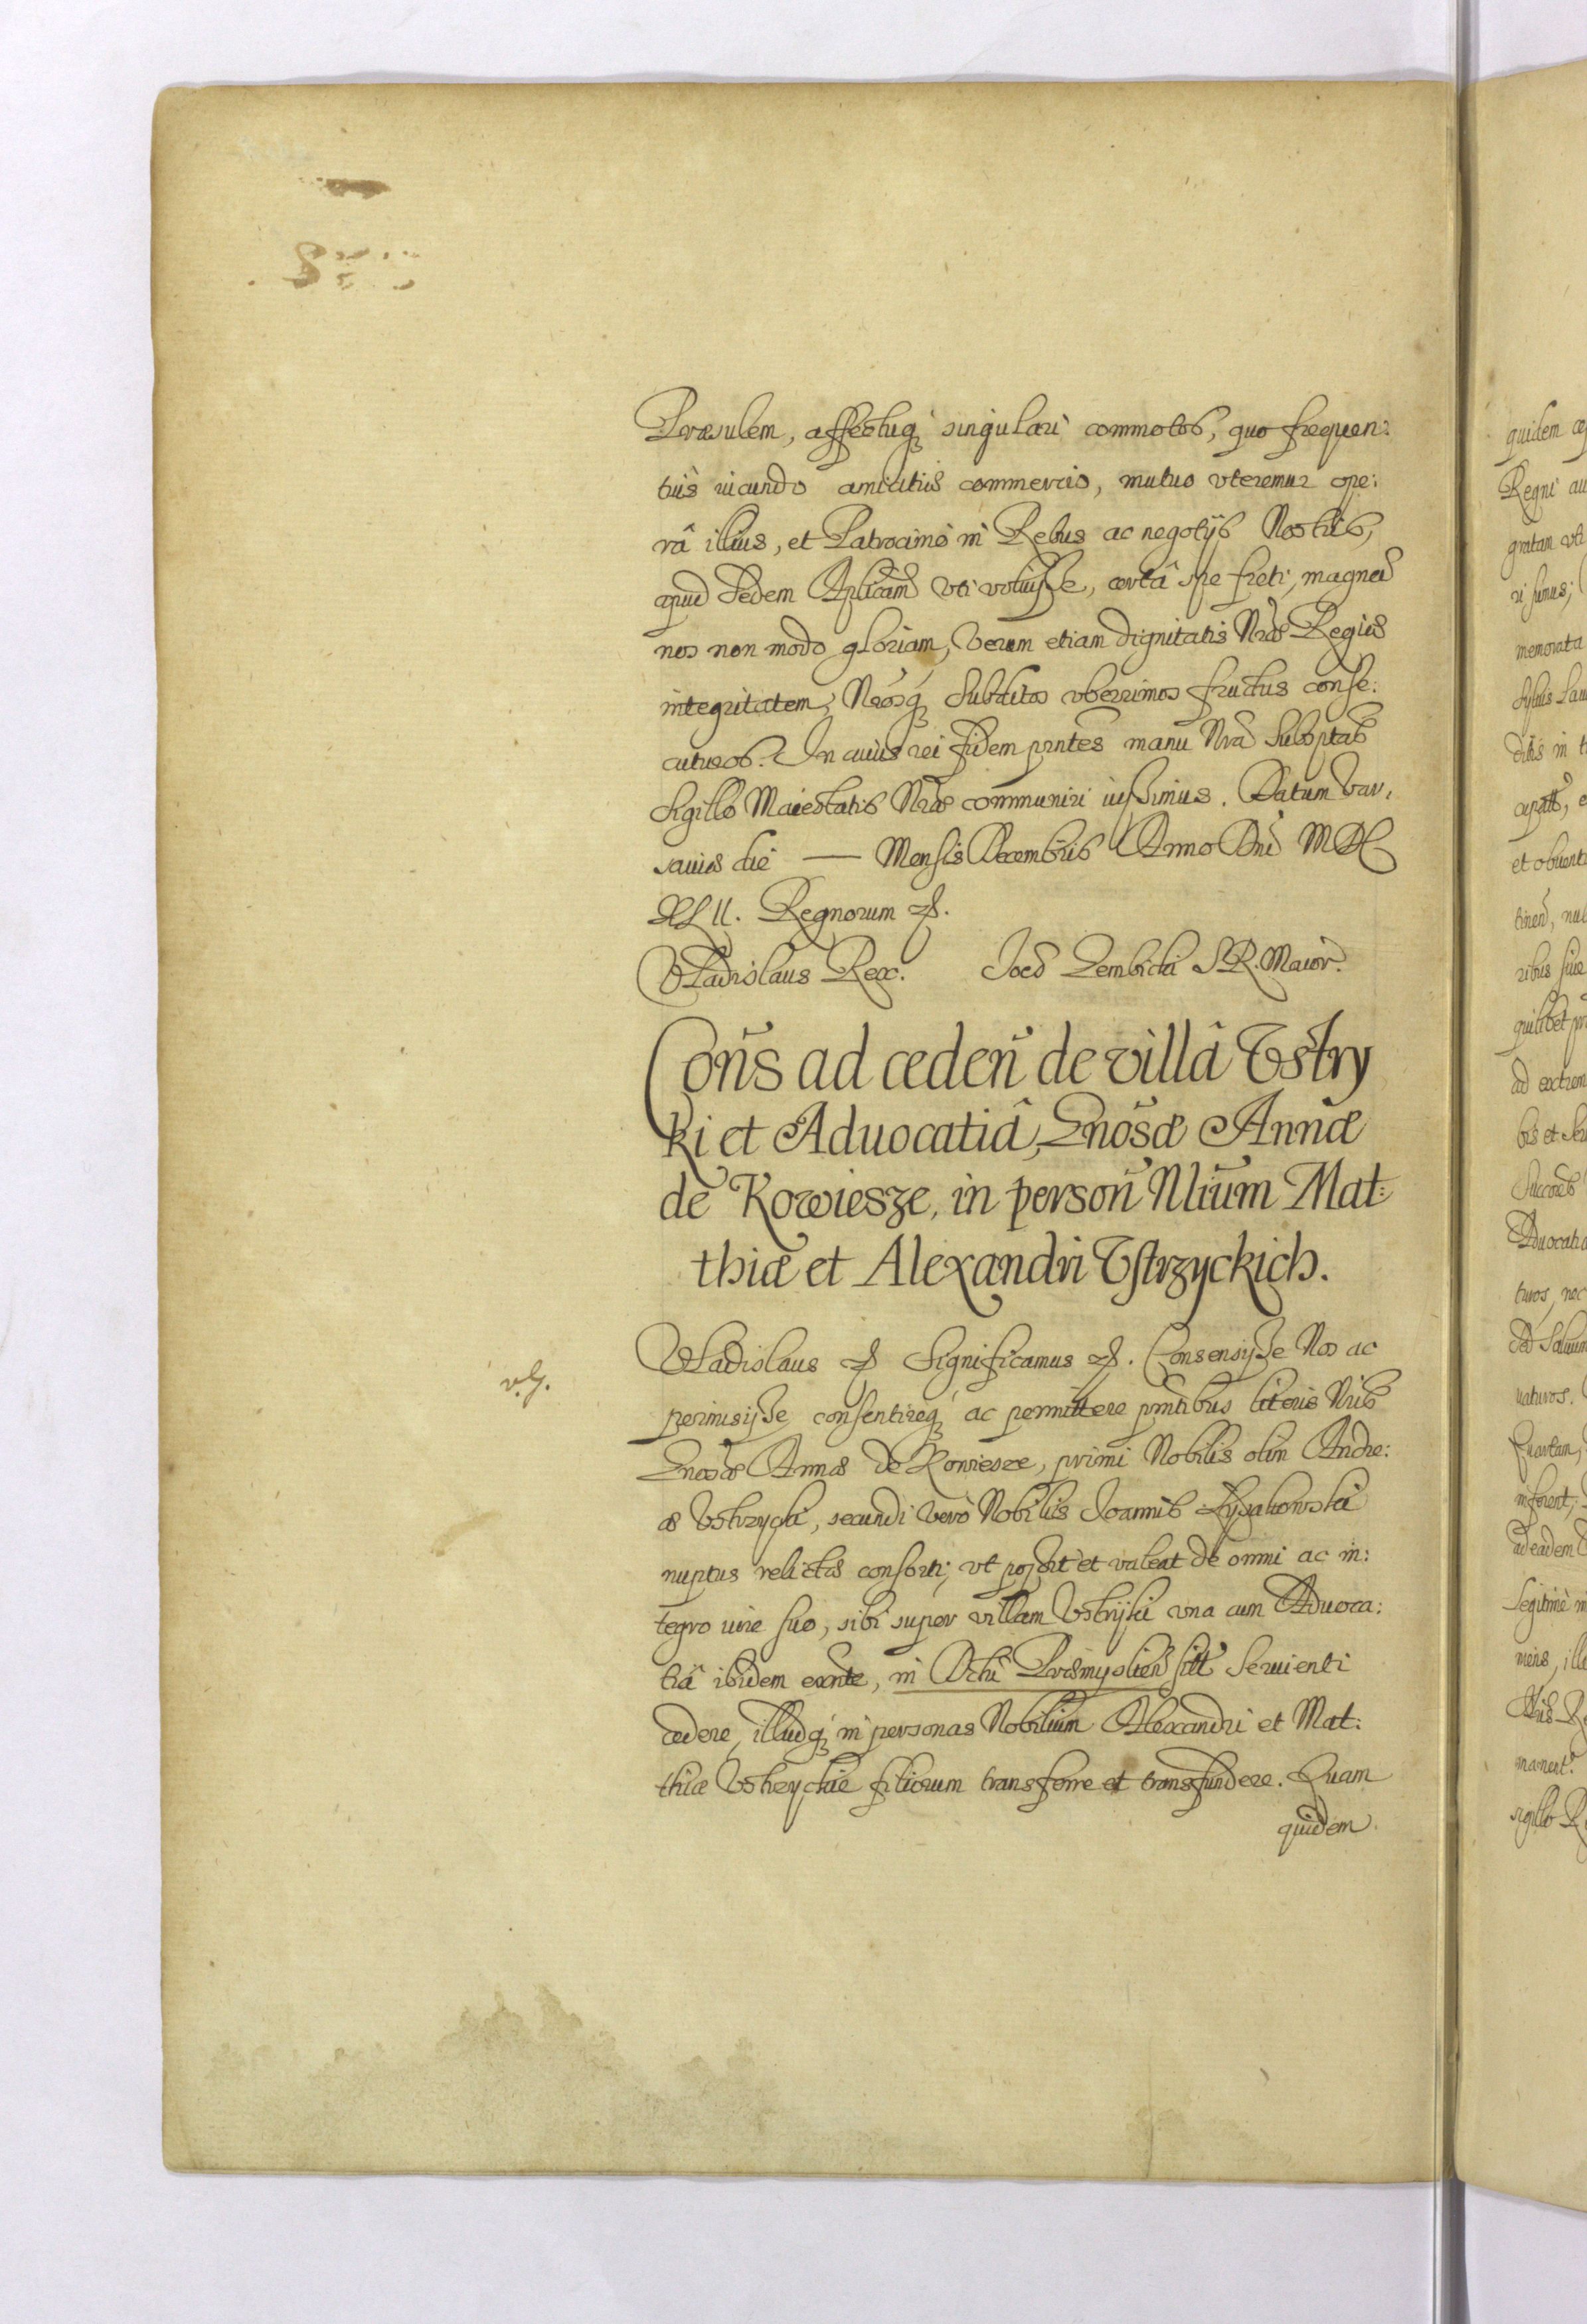 Præsulem, affectuq; singulari commotos, quo frequen:
tius iucundo amicitiæ commercio, mutuo vteremur ope:
râ illius, et Patrocinio in Rebus ac negotijs Nostris,
apud Sedem Aplicam vti voluisse, certâ spe freti, magnam
nos non modo gloriam, verum etiam dignitatis Nræ Regiæ
integritatem, Nrosq; Subditos vberrimos fructus conse:
cuturos. In cuius rei fidem pntes manu Nra Subsptas
Sigillo Maiestatis Nræ communiri iussimus. Datum Var,
sauiæ die — Mensis Decembris Anno Dni MDC
XLII. Regnorum etc.
Vladislaus Rex. Joes Gembicki S.R. Maior.
Cons ad ceden de villâ Vstry
ki et Aduocatiâ, Gnosæ Annæ
de Kowiesze, in person Nlium Mat:
thiæ et Alexandri Vstrzyckich.
Vladislaus etc Significamus etc. Consensisse Nos ac
permisisse, consentireq; ac permittere pntibus literis Nris
Gnosæ Annæ de Kowiesze, primi Nobilis olim Andre:
æ Vstrzycki, secundi vero Nobilis Joannis Lysakowski
nuptus relictæ consorti, vt possit et valeat de omni ac in:
tegro iure suo, sibi super villam Vstrijki vna cum Aduoca:
tiâ ibidem exnte, in Dctu Præmyslien sitt seruienti
cedere, illudq; in personas Nobilium Alexandri et Mat:
thiæ Vstrzyckie filiorum transferre et transfundere. Quam
quidem